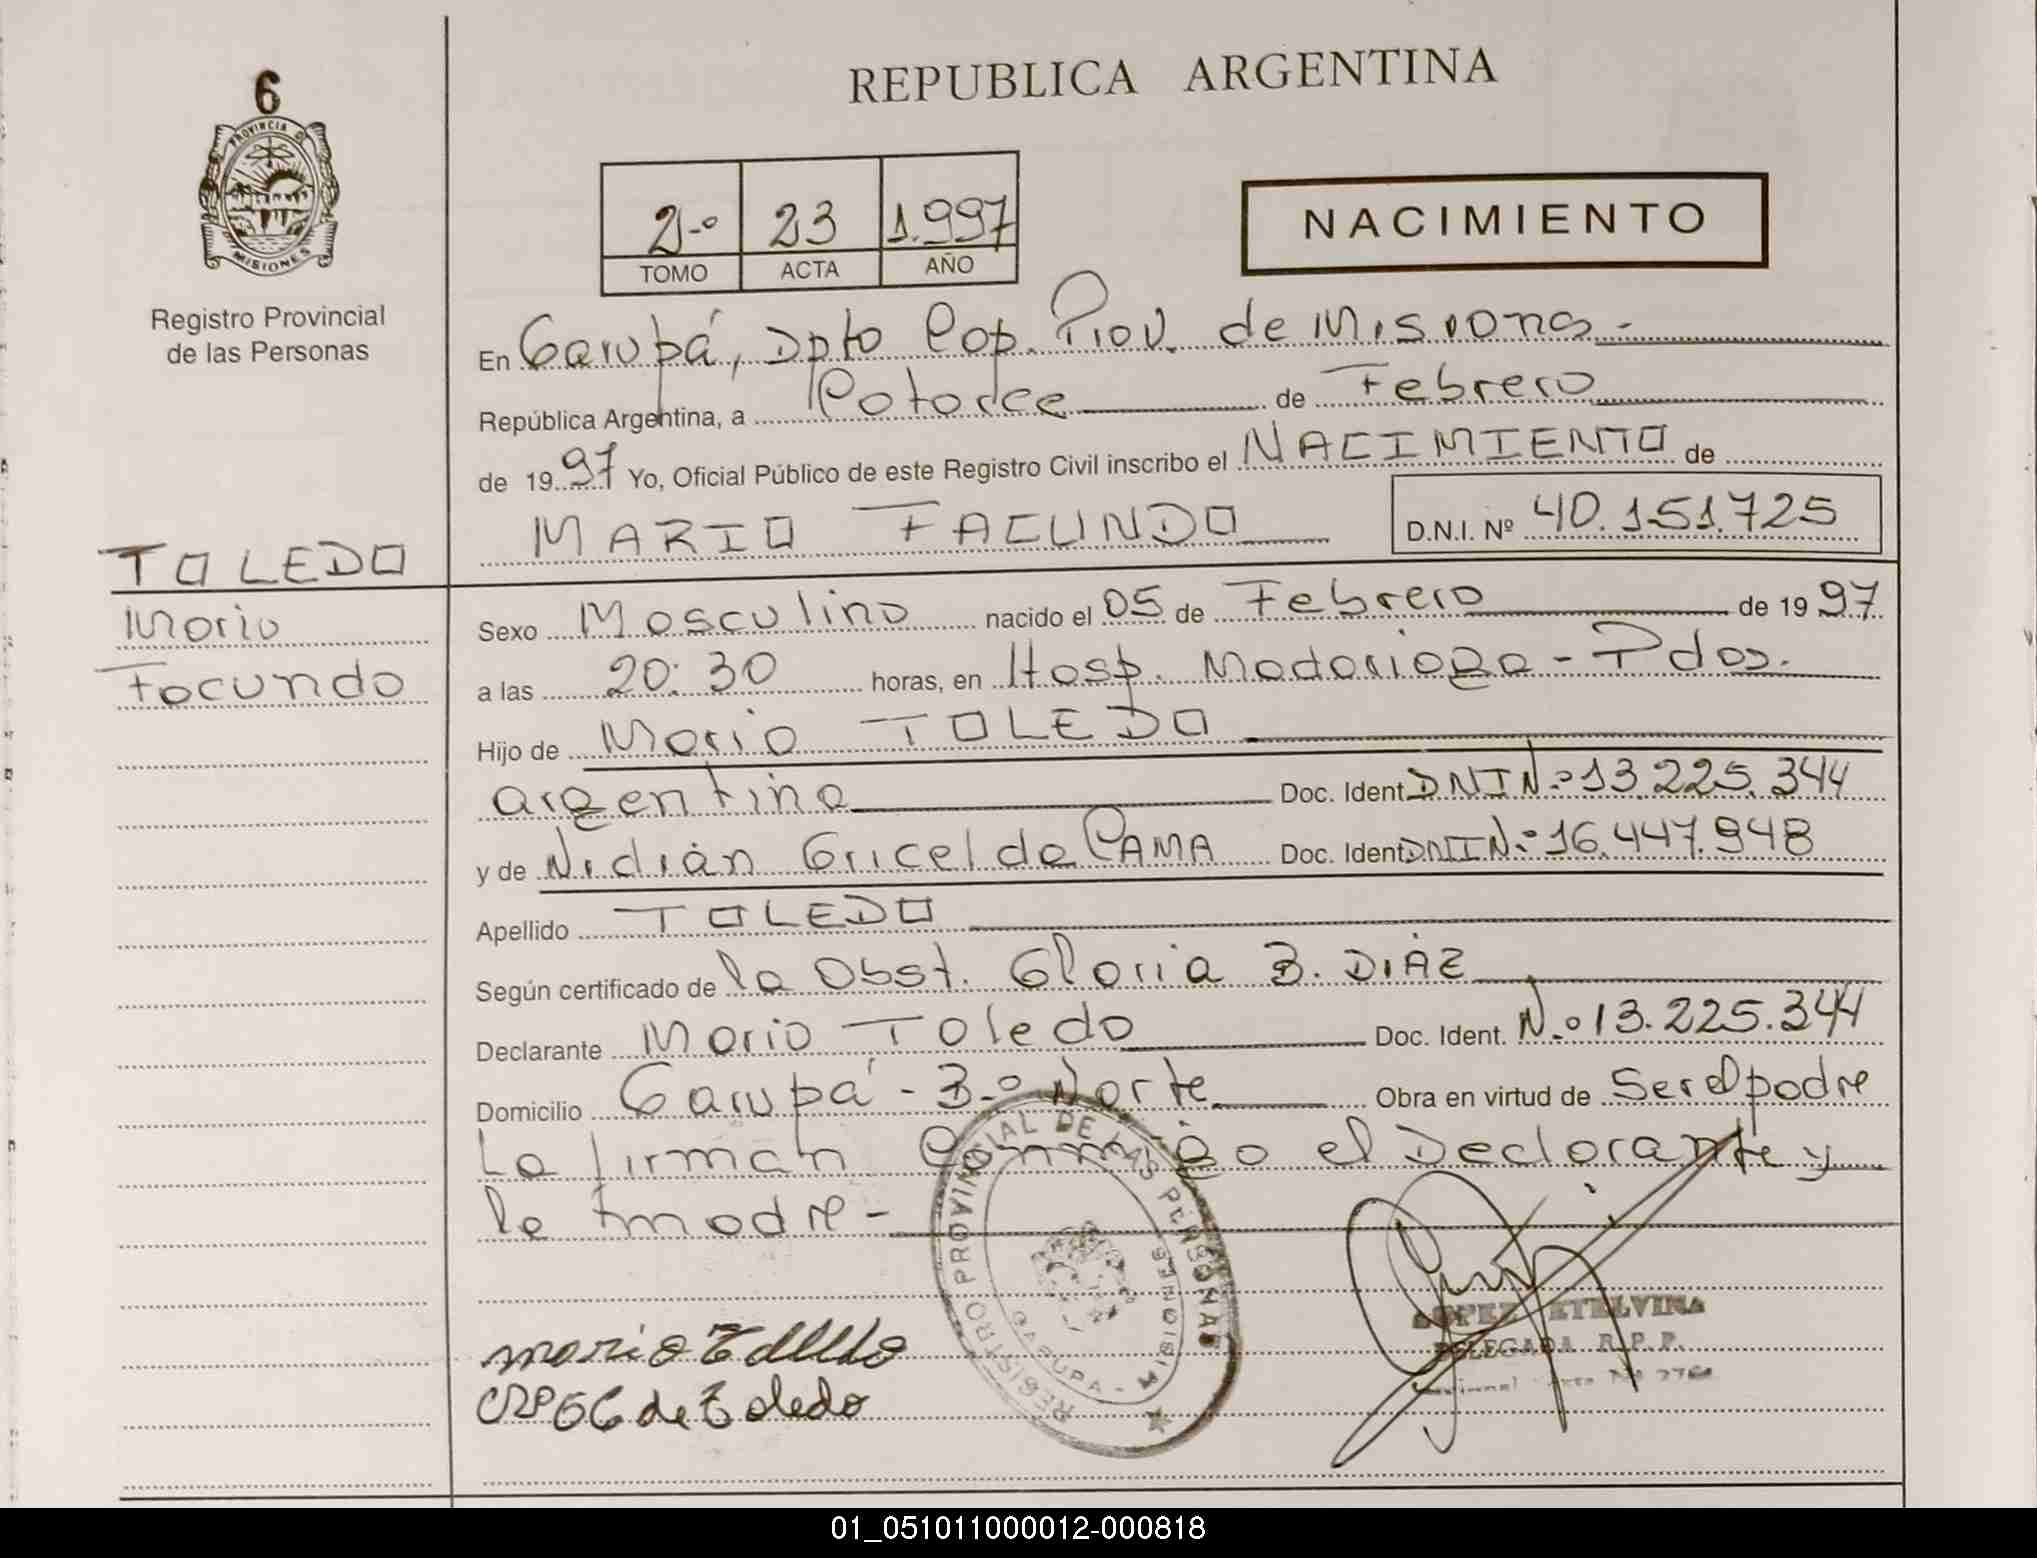 REPUBLICA ARGENTINA
6
PROVINCIA D
MISIONES
Registro Provincial
de las Personas
2-º 23 1.997
TOMO ACTA AÑO
NACIMIENTO
En Garupá, Dpto Cap. Prov. de Misiones.-
República Argentina, a Catorce de Febrero
de 1997 Yo, Oficial Público de este Registro Civil inscribo el NACIMIENTO de
MARIO FACUNDO D.N.I. Nº 40.151.725
TOLEDO
Mario
Facundo
Sexo Masculino nacido el 05 de Febrero de 1997
a las 20:30 horas, en Hosp. Madariaga - Pdas.
Hijo de Mario TOLEDO
argentino Doc. Ident DNI Nº 13.225.344
y de Nidián Gricelda CAMA Doc. Ident DNI Nº 16.447.948
Apellido TOLEDO
Según certificado de la Obst. Gloria B. DIAZ
Declarante Mario Toledo Doc. Ident. Nº 13.225.344
Domicilio Garupá - Bº Norte Obra en virtud de Ser el padre
La firman Conmigo el Declarante y
la madre -
REGISTRO PROVINCIAL DE LAS PERSONAS
GARUPA - MISIONES
LOPEZ ETELVINA
DELEGADA R.P.P.
Mario Toledo
de Toledo
01_051011000012-000818